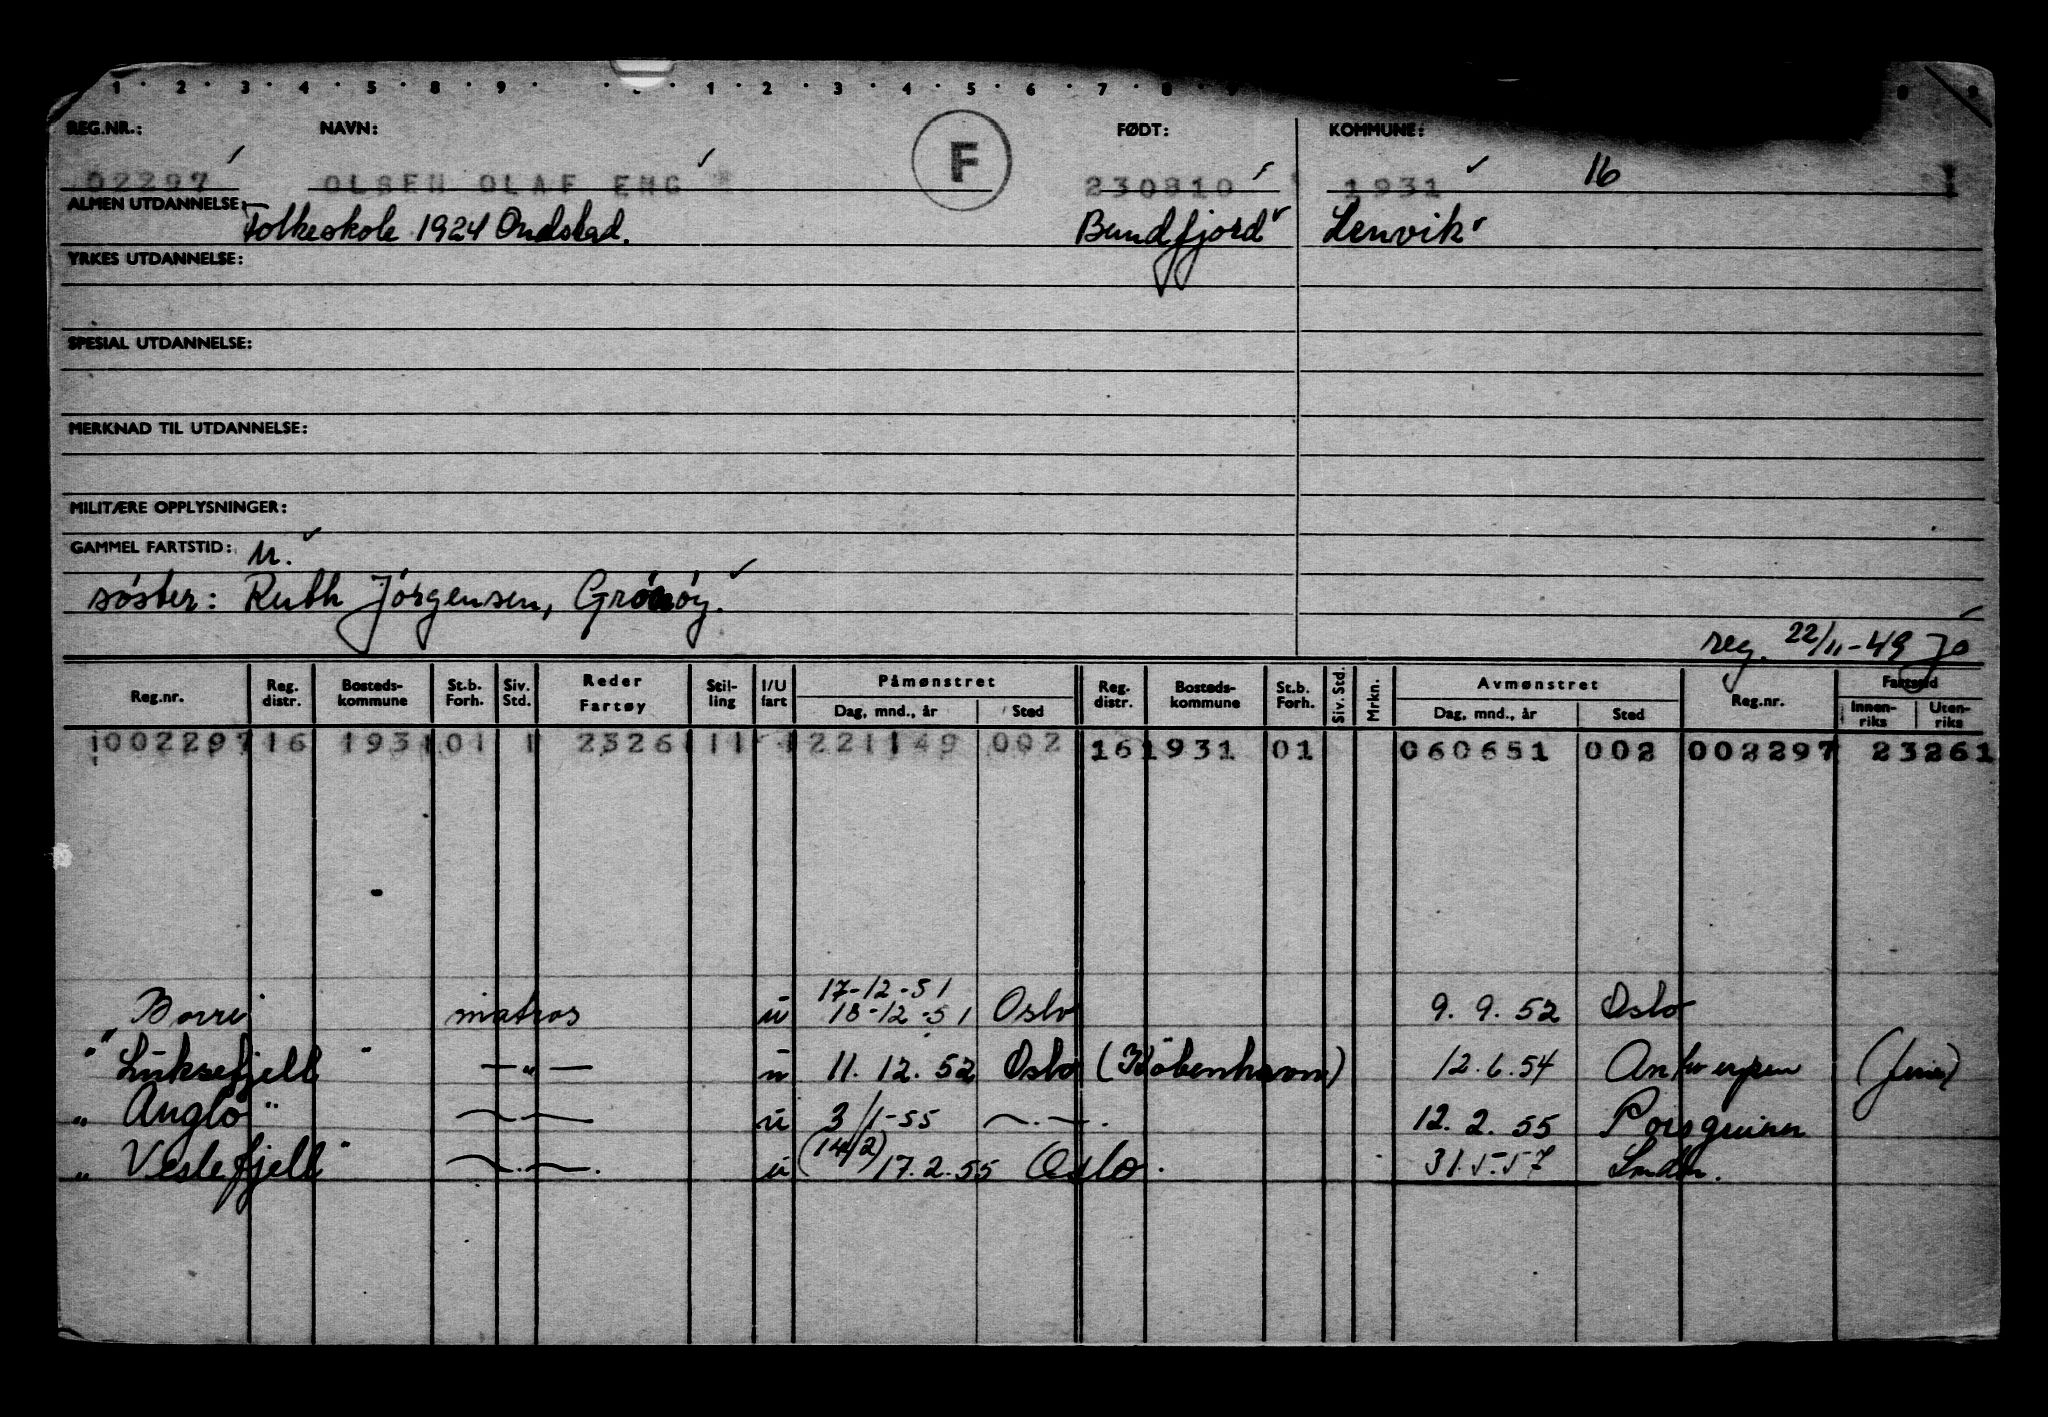 1 · 2 · 3 · 4 · 5 · 8 · 9 · 1 · 2 · 3 · 4 · 5 · 6 · 7 · 8
REG.NR.: NAVN: F FØDT: KOMMUNE:
02297 OLSEN OLAF ENG 230810 1931 16 1
ALMEN UTDANNELSE: Folkeskole 1924 Ondstad. Bundfjord Lenvik
YRKES UTDANNELSE:
SPESIAL UTDANNELSE:
MERKNAD TIL UTDANNELSE:
MILITÆRE OPPLYSNINGER:
GAMMEL FARTSTID: u.
søster: Ruth Jørgensen, Grönöy.
reg. 22/11-49 Jó
Reg.nr. Reg. distr. Bosteds-kommune St.b. Forh. Siv. Std. Reder Fartøy Stil-ling I/U fart Påmønstret Dag, mnd., år Sted Reg. distr. Bosteds-kommune St.b. Forh. Siv. Std. Mrkn. Avmønstret Dag, mnd., år Sted Reg.nr. Fartstid Innen-riks Uten-riks
1002297 16 1931 01 1 2326 11 4 221149 002 16 1931 01 060651 002 002297 23261
17-12-51
Borri matros u 18-12-51 Oslo 9. 9. 52 Oslo
" Luksefjell " — " — u 11. 12. 52 Oslo (København) 12. 6. 54 Antwerpen
" Anglo " —.— u 3/1-55 —.—. 12. 2. 55 Porsgrunn
" Veslefjell " —.—. u (14/2) 17. 2. 55 Oslo. 31.5.57